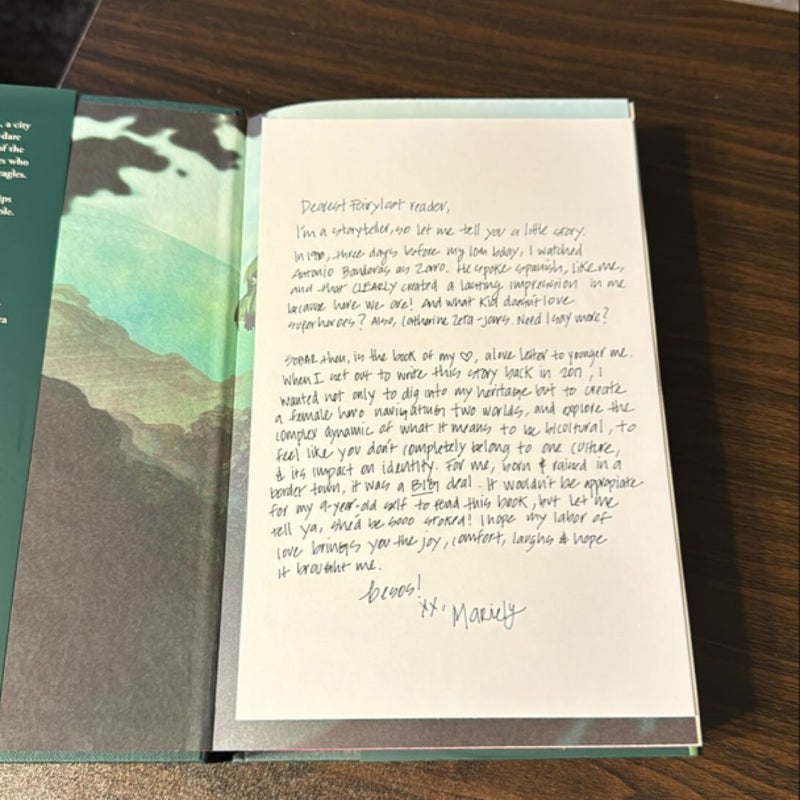 , a city
dare
of the
s who
eagles.
ips
ble.
a
Dearest Fairyloot reader,
I'm a storyteller, so let me tell you a little story.
In 1998, three days before my 10th bday, I watched
Antonio Banderas as Zorro. He spoke Spanish, like me,
and that CLEARLY created a lasting impression in me
because here we are! And what kid doesn't love
superheroes? Also, Catherine Zeta-Jones. Need I say more?
SOBAR, then, is the book of my ♡, a love letter to younger me.
When I set out to write this story back in 2017, I
wanted not only to dig into my heritage but to create
a female hero navigating two worlds, and explore the
complex dynamic of what it means to be bicultural, to
feel like you don't completely belong to one culture,
& its impact on identity. For me, born & raised in a
border town, it was a BIG deal. It wouldn't be appropiate
for my 9-year-old self to read this book, but let me
tell ya, she'd be sooo stoked! I hope my labor of
love brings you the joy, comfort, laughs & hope
it brought me.
besos!
xx, Mariely